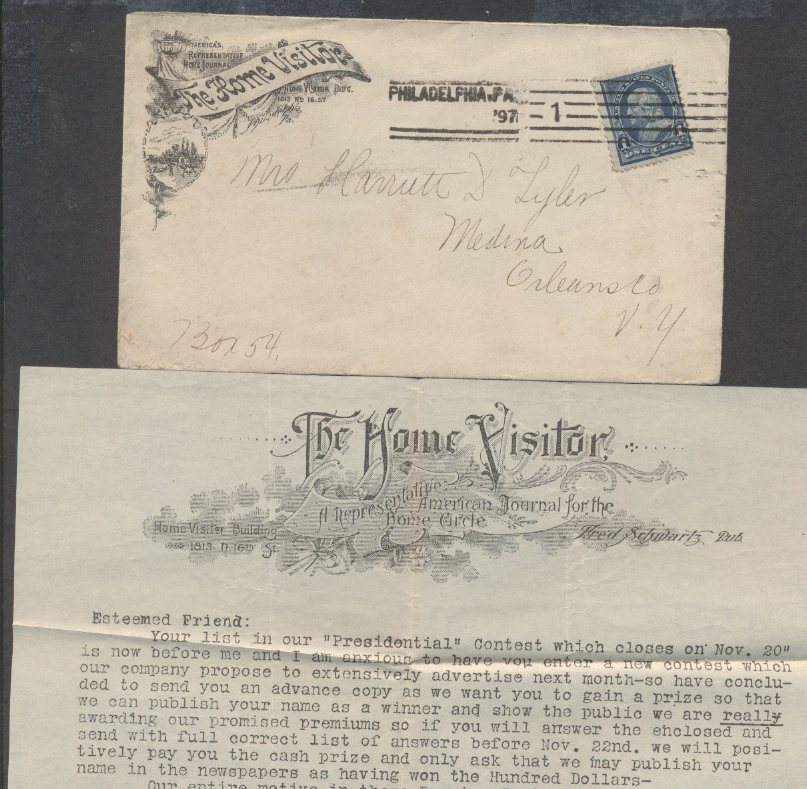 AMERICA'S
REPRESENTATIVE
HOME JOURNAL
The Home Visitor
HOME VISITOR BLDG.
1813 No 16. ST
Philadelphia
Pa.
PHILADELPHIA, PA.
'97
1
ONE CENT
Mrs Harriett D Tyler
Medina
Orleans Co
N. Y
Box 54.
The Home Visitor
A Representative American Journal for the
Home Circle
Home Visitor Building
1813 N. 16th St.
Fred Schwartz, Pub.
Esteemed Friend:
Your list in our "Presidential" Contest which closes on Nov. 20"
is now before me and I am anxious to have you enter a new contest which
our company propose to extensively advertise next month-so have conclu-
ded to send you an advance copy as we want you to gain a prize so that
we can publish your name as a winner and show the public we are really
awarding our promised premiums so if you will answer the ehclosed and
send with full correct list of answers before Nov. 22nd. we will posi-
tively pay you the cash prize and only ask that we may publish your
name in the newspapers as having won the Hundred Dollars-
Our entire motive in these